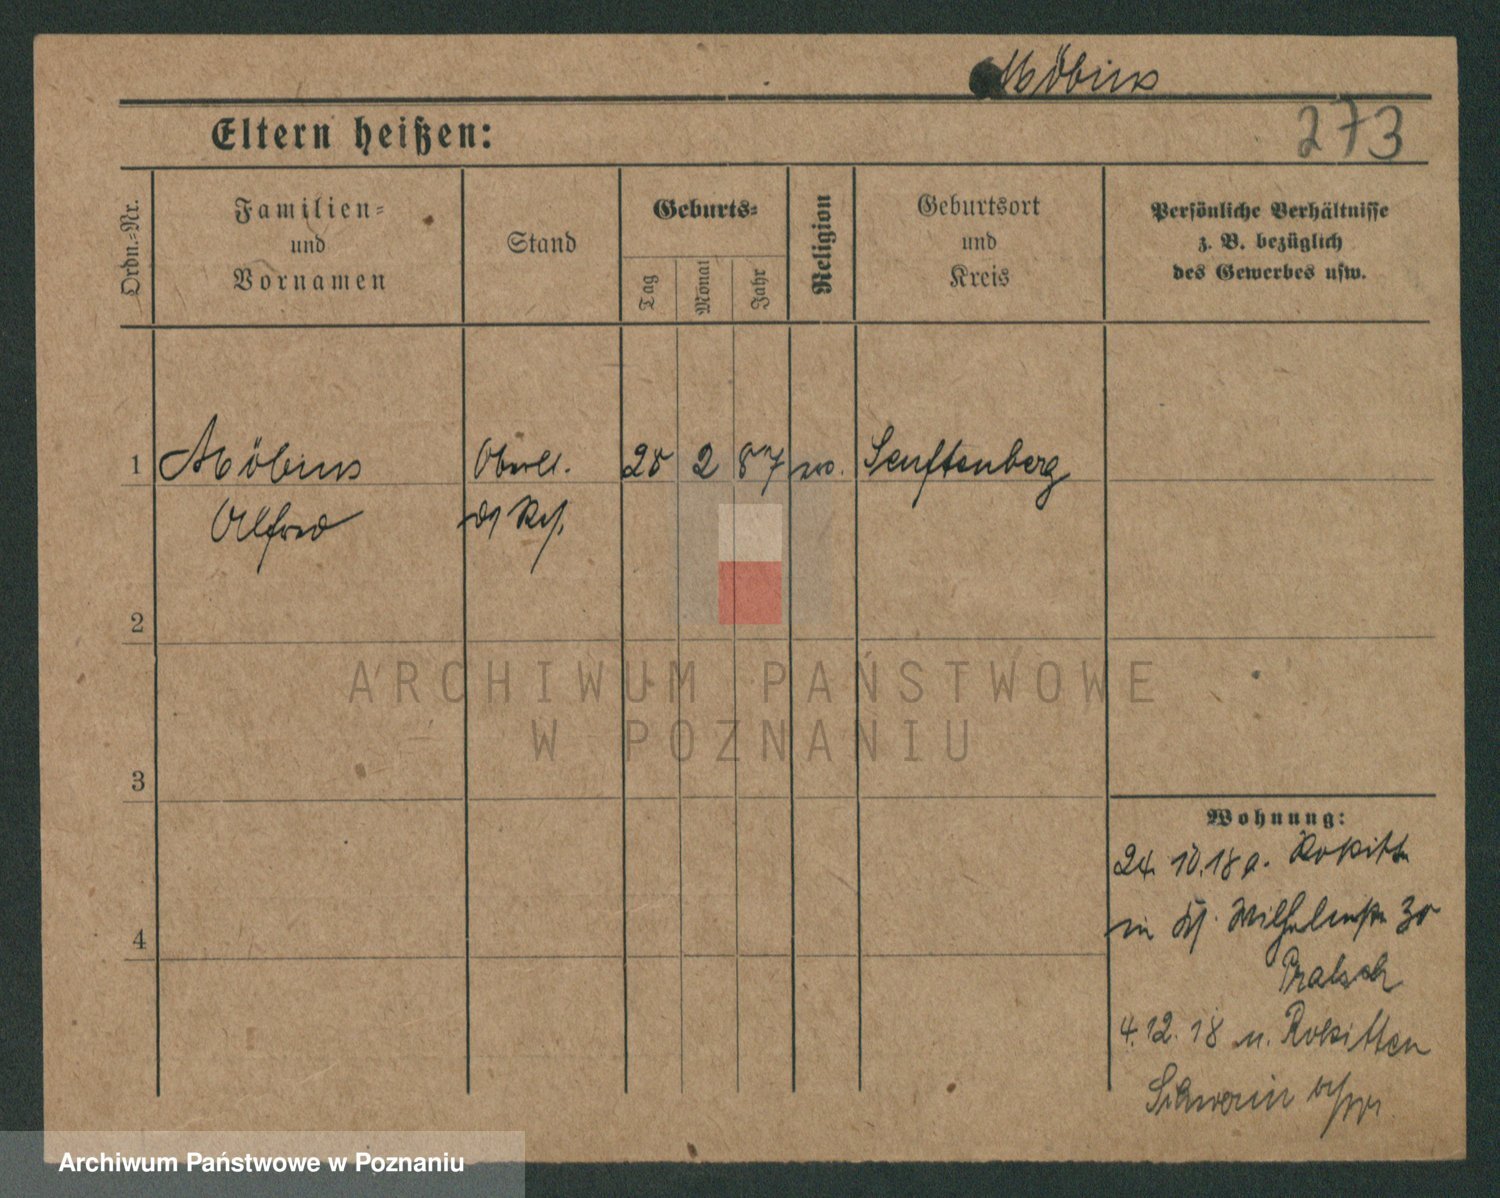 Möbius
Eltern heißen:
273
Ordn.-Nr.
Familien-
und
Vornamen
Stand
Geburts-
Tag
Monat
Jahr
Religion
Geburtsort
und
Kreis
Persönliche Verhältnisse
z. B. bezüglich
des Gewerbes usw.
1
Möbius
Oberlt.
28 2 87
Senftenberg
Alfred
2
ARCHIWUM PAŃSTWOWE
W POZNANIU
3
Wohnung:
24. 10. 18 a. Rokitten
in Wilhelmstr 30
4
4. 12. 18 n. Rokitten
Schwerin
Archiwum Państwowe w Poznaniu